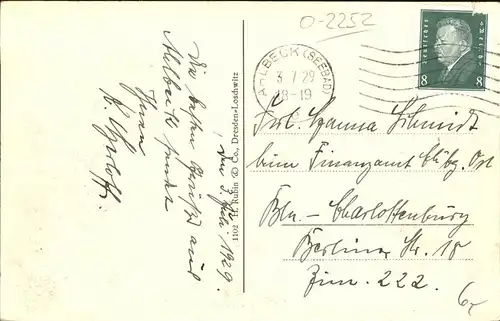 0-2252
AHLBECK (SEEBAD)
3.7.29
18-19
Deutsches Reich
8 8
Die besten Grüße aus
Ahlbeck sendet
Ihnen
den 3. Juli 1929.
1102 H. Rubin & Co., Dresden-Loschwitz
Frl. Hanna Schmidt
beim Finanzamt Ost
Bln-Charlottenburg
Berliner Str. 18
Zim. 222.
6,-